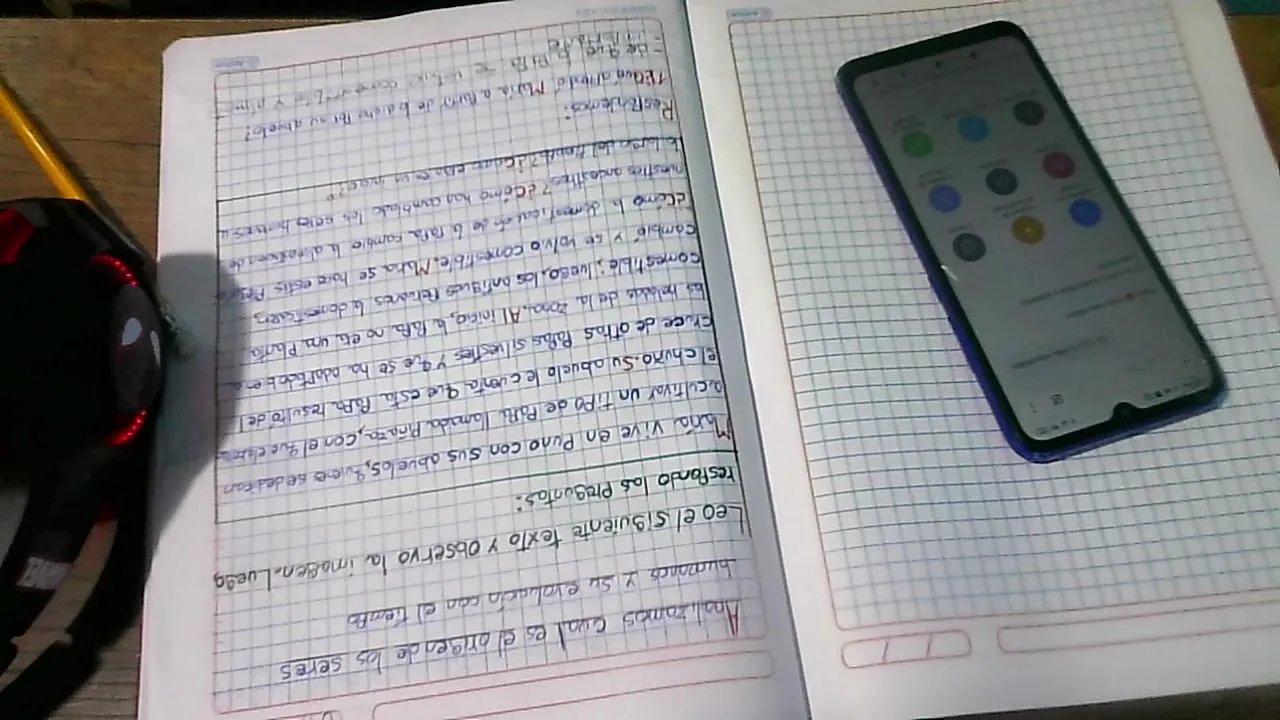 Analizamos cual es el origen de los seres
humanos y su evolución con el tiempo
Leo el siguiente texto y observo la imagen. Luego
respondo las preguntas:
María vive en Puno con sus abuelos, quienes se dedican
a cultivar un tipo de papa llamada Piñaza, con el que elabora
el chuño. Su abuelo le cuenta que esta papa resultó del
cruce de otras papas silvestres y que se ha adaptado bien a
las heladas de la zona. Al inicio, la papa no era una planta
comestible; luego, los antiguos peruanos la domesticaron,
cambió y se volvió comestible. María se hace estas preg
¿Cómo la domesticación de la papa cambió la alimentación de
nuestros ancestros? ¿Cómo han cambiado los seres humanos a
lo largo del tiempo? ¿Cuál es
Respondemos:
1. ¿Qué aprendió María a partir de lo dicho por su abuelo?
- de que la papa se volvió comestible y